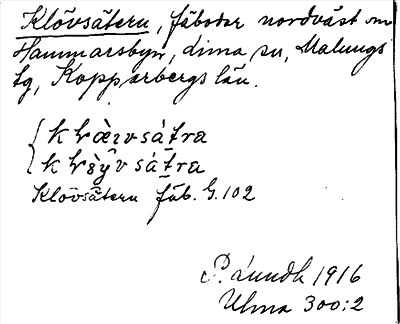 Klövsätern, fäbodar nordväst om
Hammarsbyn, Lima sn, Malungs
tg, Kopparbergs län.
klövsätra
klöyvsätra
Klövsätern fäb. G. 102
P. Áundh 1916
Ulma 300:2